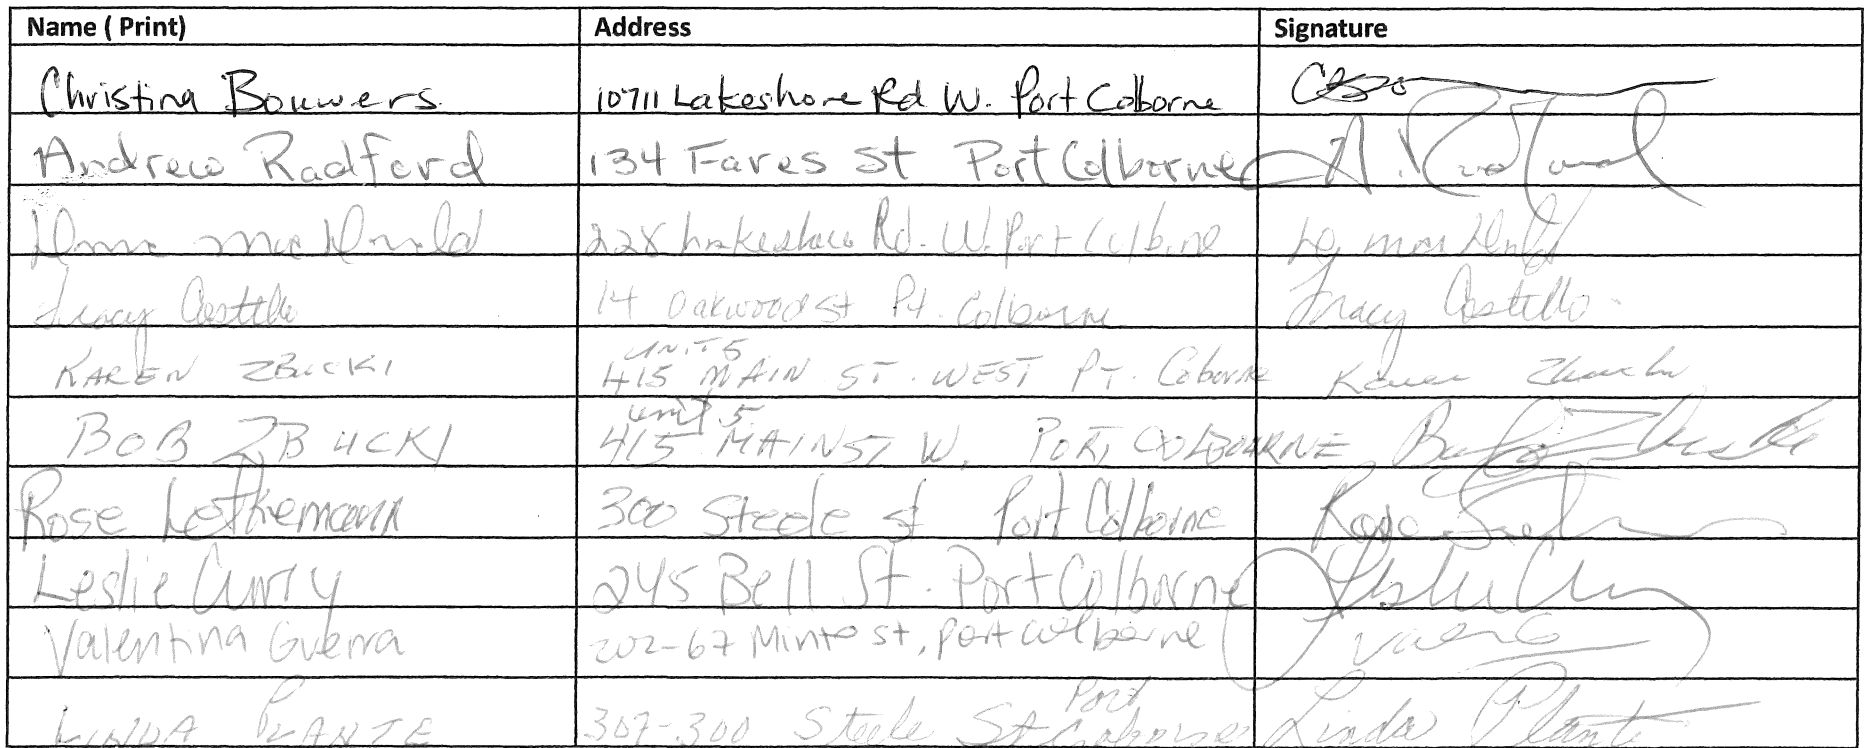 Name ( Print) Address Signature
Christina Bouwers 10711 Lakeshore Rd W. Port Colborne
Andrew Radford 134 Fares St Port Colborne A. Radford
MacDonald 228 Lakeshore Rd. W. Port Colborne
Tracy Costello 14 Oakwood St Pt. Colborne Tracy Costello
UNIT 5
KAREN ZBUCKI 415 MAIN ST. WEST PT. Coborne Karen
unit 5
BOB ZBUCKI 415 MAIN ST W. PORT COLBOURNE
Rose Lothemann 300 Steele st Port Colborne Rose
Leslie Curry 245 Bell St. Port Colborne Leslie
Valentina Guerra 202-67 Minto st, port colborne
Port
LINDA PLANTE 307-300 Steele St Coborne Linda Plante